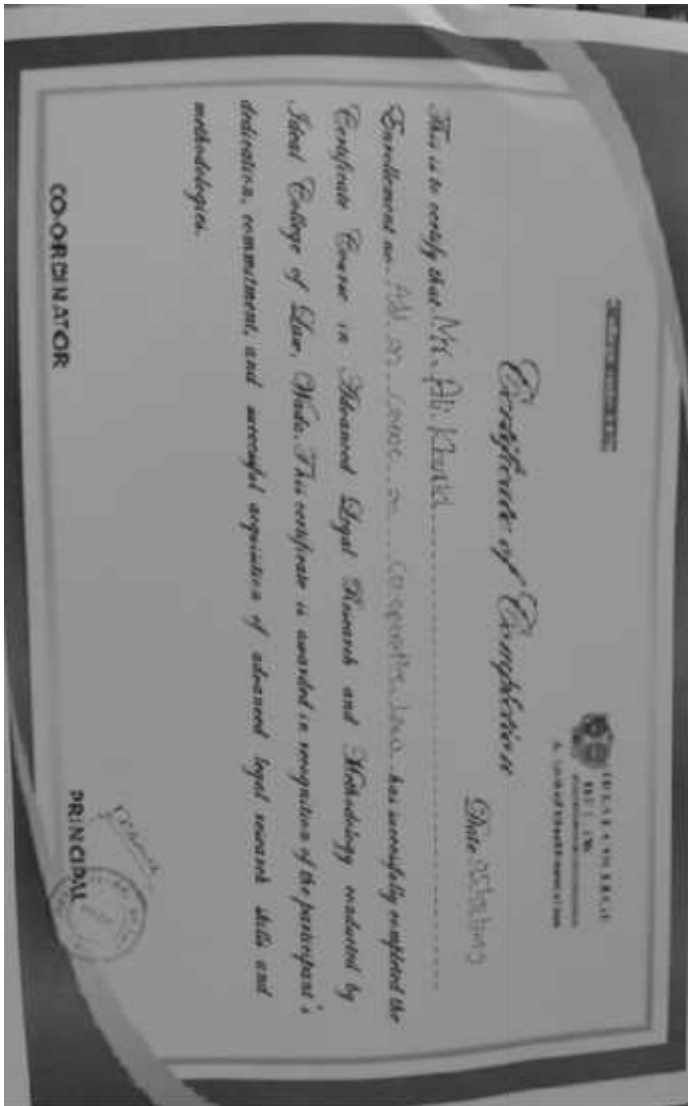 IDEAL COLLEGE
OF LAW
Certificate of Completion
Date
This is to certify that Mr. Ali Khalid
Enrollment no. Add. on course on cooperative law has successfully completed the
Certificate Course in Advanced Legal Research and Methodology conducted by
Ideal College of Law, Wada. This certificate is awarded in recognition of the participant's
dedication, commitment, and successful acquisition of advanced legal research skills and
methodologies.
CO-ORDINATOR
PRINCIPAL